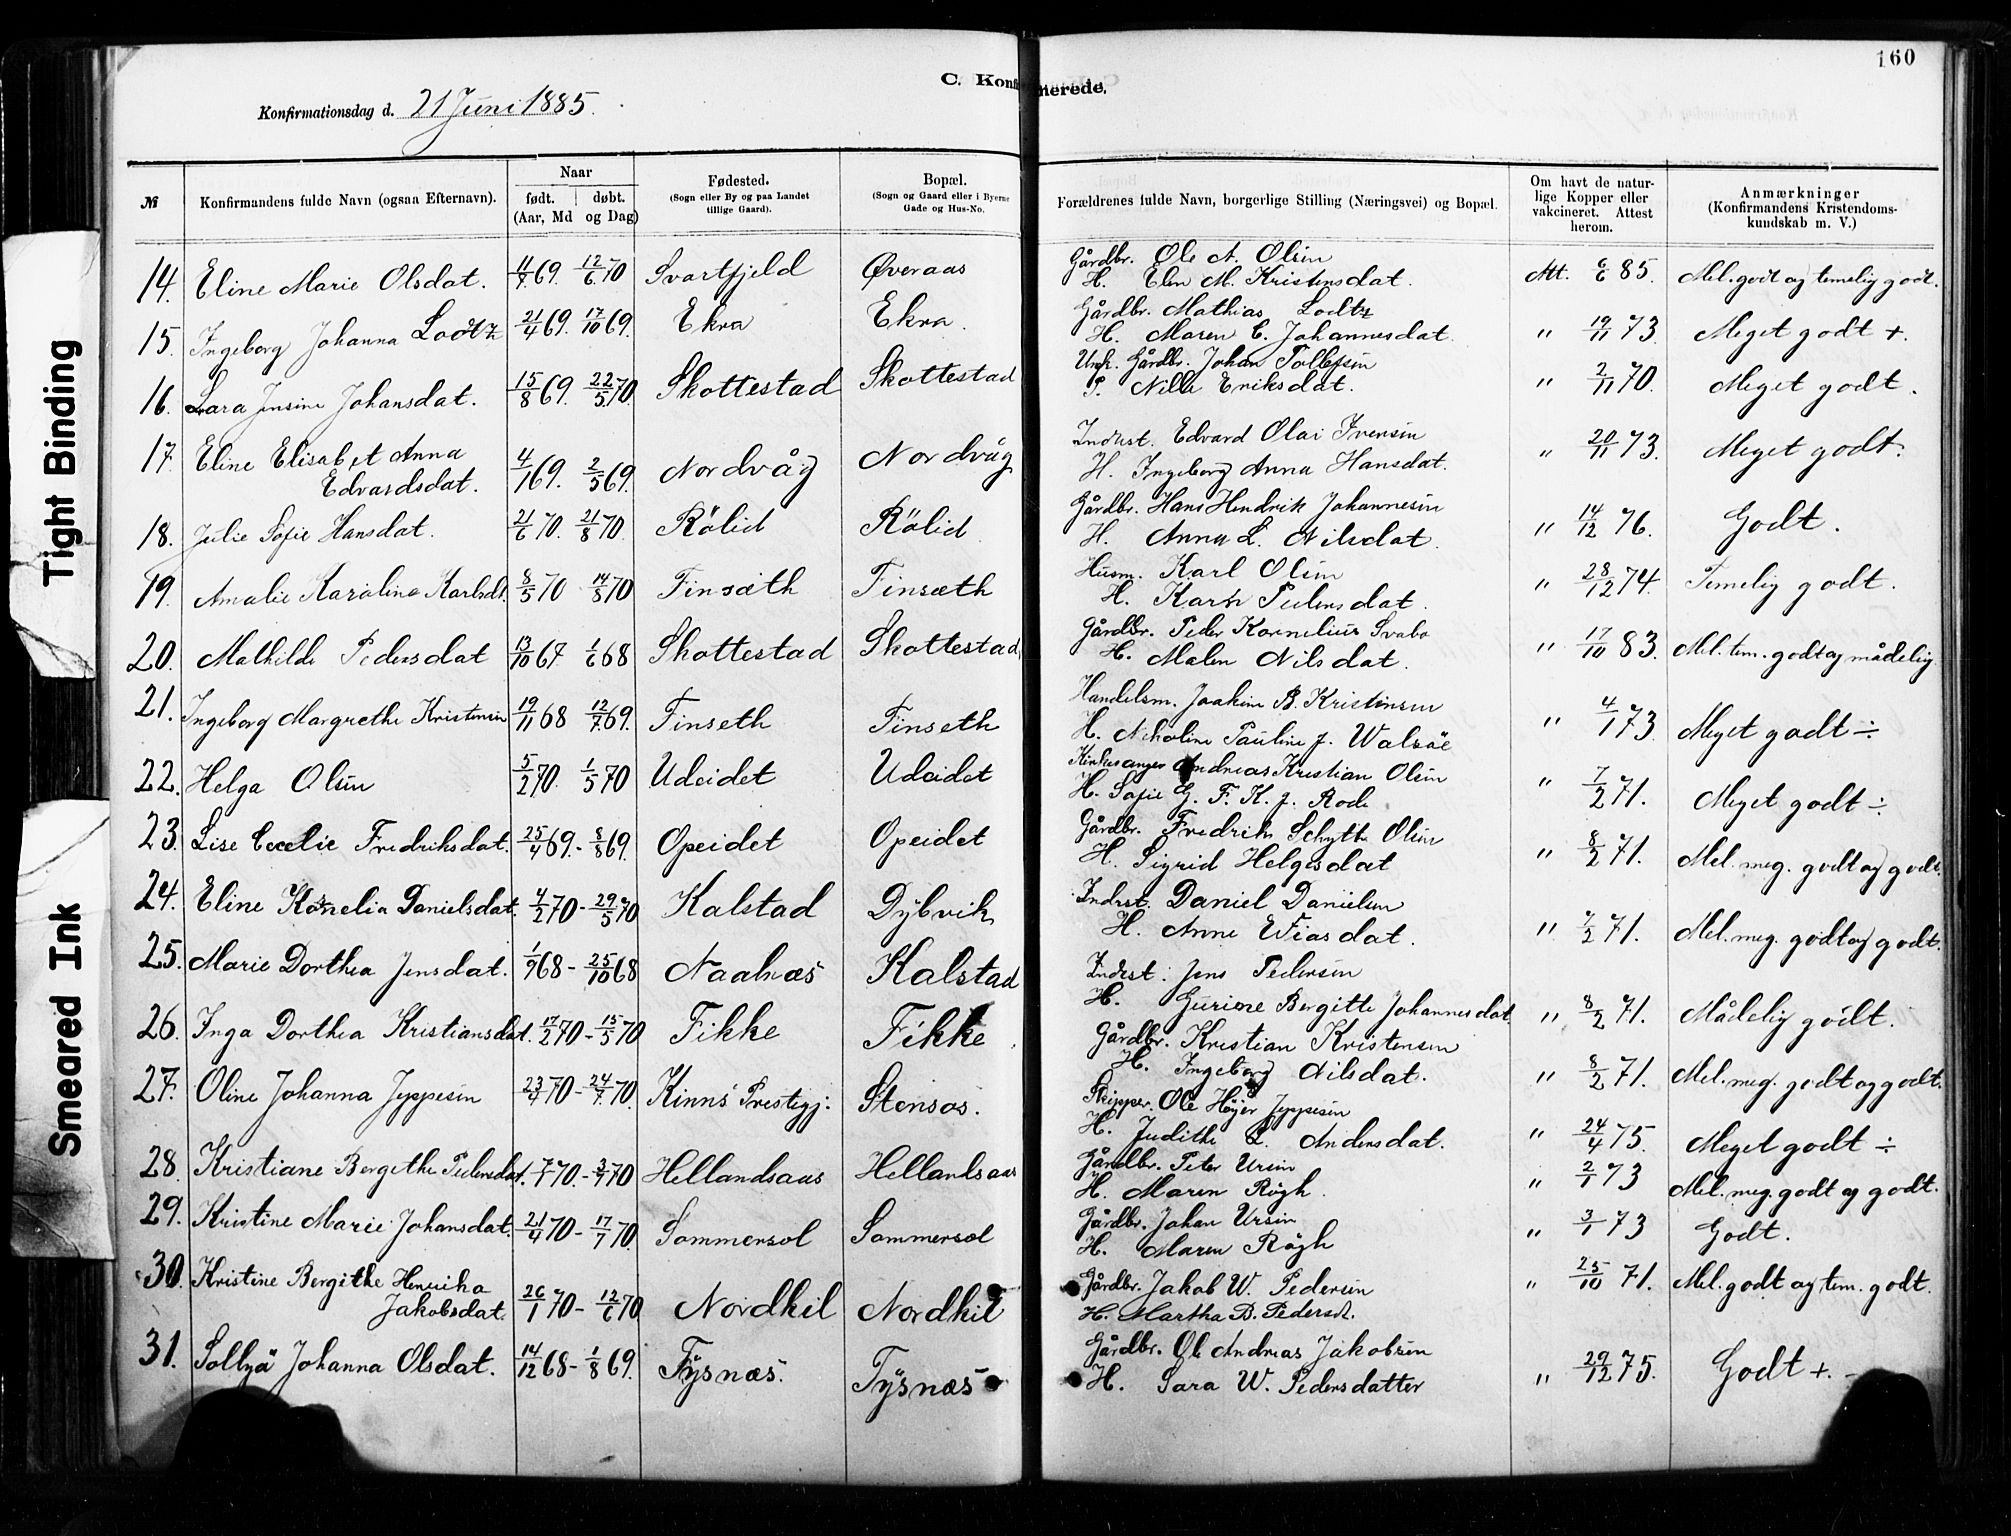 160
C. Konfirmerede.
Konfirmationsdag d. 21 Juni 1885.
№
Konfirmandens fulde Navn (ogsaa Efternavn).
Naar
født. døbt.
(Aar, Md og Dag)
Fødested.
(Sogn eller By og paa Landet
tillige Gaard).
Bopæl.
(Sogn og Gaard eller i Byerne
Gade og Hus-No.
Forældrenes fulde Navn, borgerlige Stilling (Næringsvei) og Bopæl.
Om havt de natur-
lige Kopper eller
vakcineret. Attest
herom.
Anmærkninger
(Konfirmandens Kristendoms-
kundskab m. V.)
14. Eline Marie Olsdat. 11/7 69. 12/6 70 Svartfjeld Øveraas Gårdbr. Ole A. Olsen
H. Elen M. Kristensdat. Att. 6/6 85. Mel. godt og temelig godt.
15. Ingeborg Johanna Lodtz 21/4 69. 17/10 69. Ekra Ekra. Gårdbr. Mathias Lodtz
H. Maren C. Johannesdat. " 19/11 73. Meget godt +.
16. Lara Jensine Johansdat. 15/8 69. 22/5 70. Skottestad Skottestad Ung. Gårdbr. Johan Tollefsen
P. Nille Eriksdat. " 2/11 70. Meget godt.
17. Eline Elisabet Anna
Edvardsdat. 4/1 69. 2/5 69. Nordvåg Nordvåg Inderst. Edvard Olai Ivensen
H. Ingeborg Anna Hansdat. " 20/11 73. Meget godt.
18. Julie Sofie Hansdat. 21/6 70. 21/8 70. Rölid Rölid Gårdbr. Hans Hendrik Johannesen
H. Anna L. Nilsdat. " 14/12 76. Godt.
19. Amalie Karoline Karlsdt. 8/5 70 14/8 70 Finsæth Finsæth Husm. Karl Olsen
H. Karen Pedersdat. " 28/12 74. Temelig godt.
20. Mathilde Pedersdat 13/10 67 1/6 68 Skottestad Skottestad Gårdbr. Peder Kornelius Svabo
H. Malen Nilsdat. " 17/10 83. Mel. tem. godt og mådelig
21. Ingeborg Margrethe Kristensen 19/11 68 12/7 69. Finseth Finseth Handelsm. Joakim B. Kristensen
H. Nikoline Pauline f. Walsöe " 4/1 73. Meget godt ÷
22. Helga Olsen 5/2 70. 1/5 70 Udeidet Udeidet Kirkesanger Andreas Kristian Olsen
H. Sofie G. F. K. f. Rode " 7/2 71. Meget godt ÷
23. Lise Cecelie Fredriksdat. 25/4 69. - 8/8 69. Opeidet Opeidet Gårdbr. Fredrik Schytte Olsen
H. Sigrid Helgesdat " 8/2 71. Mel. meg. godt og godt.
24. Eline Kornelia Danielsdat. 4/2 70 - 29/5 70 Kalstad Dybvik Inderst. Daniel Danielsen
H. Anne Eliasdat. " 7/2 71. Mel. meg. godt og godt.
25. Marie Dorthea Jensdat. 1/9 68 - 25/10 68 Naahnæs Kalstad Inderst. Jens Pedersen
H. Guriane Bergitte Johannesdat " 8/2 71. Mådelig godt.
26. Inga Dorthea Kristiansdat. 17/2 70 - 15/5 70 Fikke Fikke. Gårdbr. Kristian Kristensen
H. Ingeborg Nilsdat. " 8/2 71. Mel. meg. godt og godt.
27. Oline Johanna Jeppesen 23/4 70 - 24/7 70. Kinns Prestegj: Stensos. Skipper. Ole Höjer Jeppesen
H. Judithe L. Andersdat. " 24/4 75. Meget godt ÷
28. Kristiane Bergethe Pedersdat. 7/1 70. - 3/7 70 Hellandsaas Hellandsaas Gårdbr. Peter Ursin
H. Maren Rögh. " 2/1 73 Mel. meg. godt og godt.
29. Kristine Marie Johansdat. 21/4 70 - 17/7 70. Sommersol Sommersol Gårdbr. Johan Ursin
H. Maren Rögh " 3/1 73 Godt.
30. Kristine Bergithe Henrika
Jakobsdat. 26/1 70 - 12/6 70 Nordkil Nordkil Gårdbr. Jakob W. Pedersen
H. Martha B. Pedersd. " 25/10 71. Mel. godt og tem. godt.
31. Solløi Johanna Olsdat. 14/12 68 - 1/8 69. Tysnæs. Tysnæs Gårdbr. Ole Andreas Jakobsen
H. Sara W. Pedersdatter " 29/12 75. Godt +.
Tight Binding
Smeared Ink